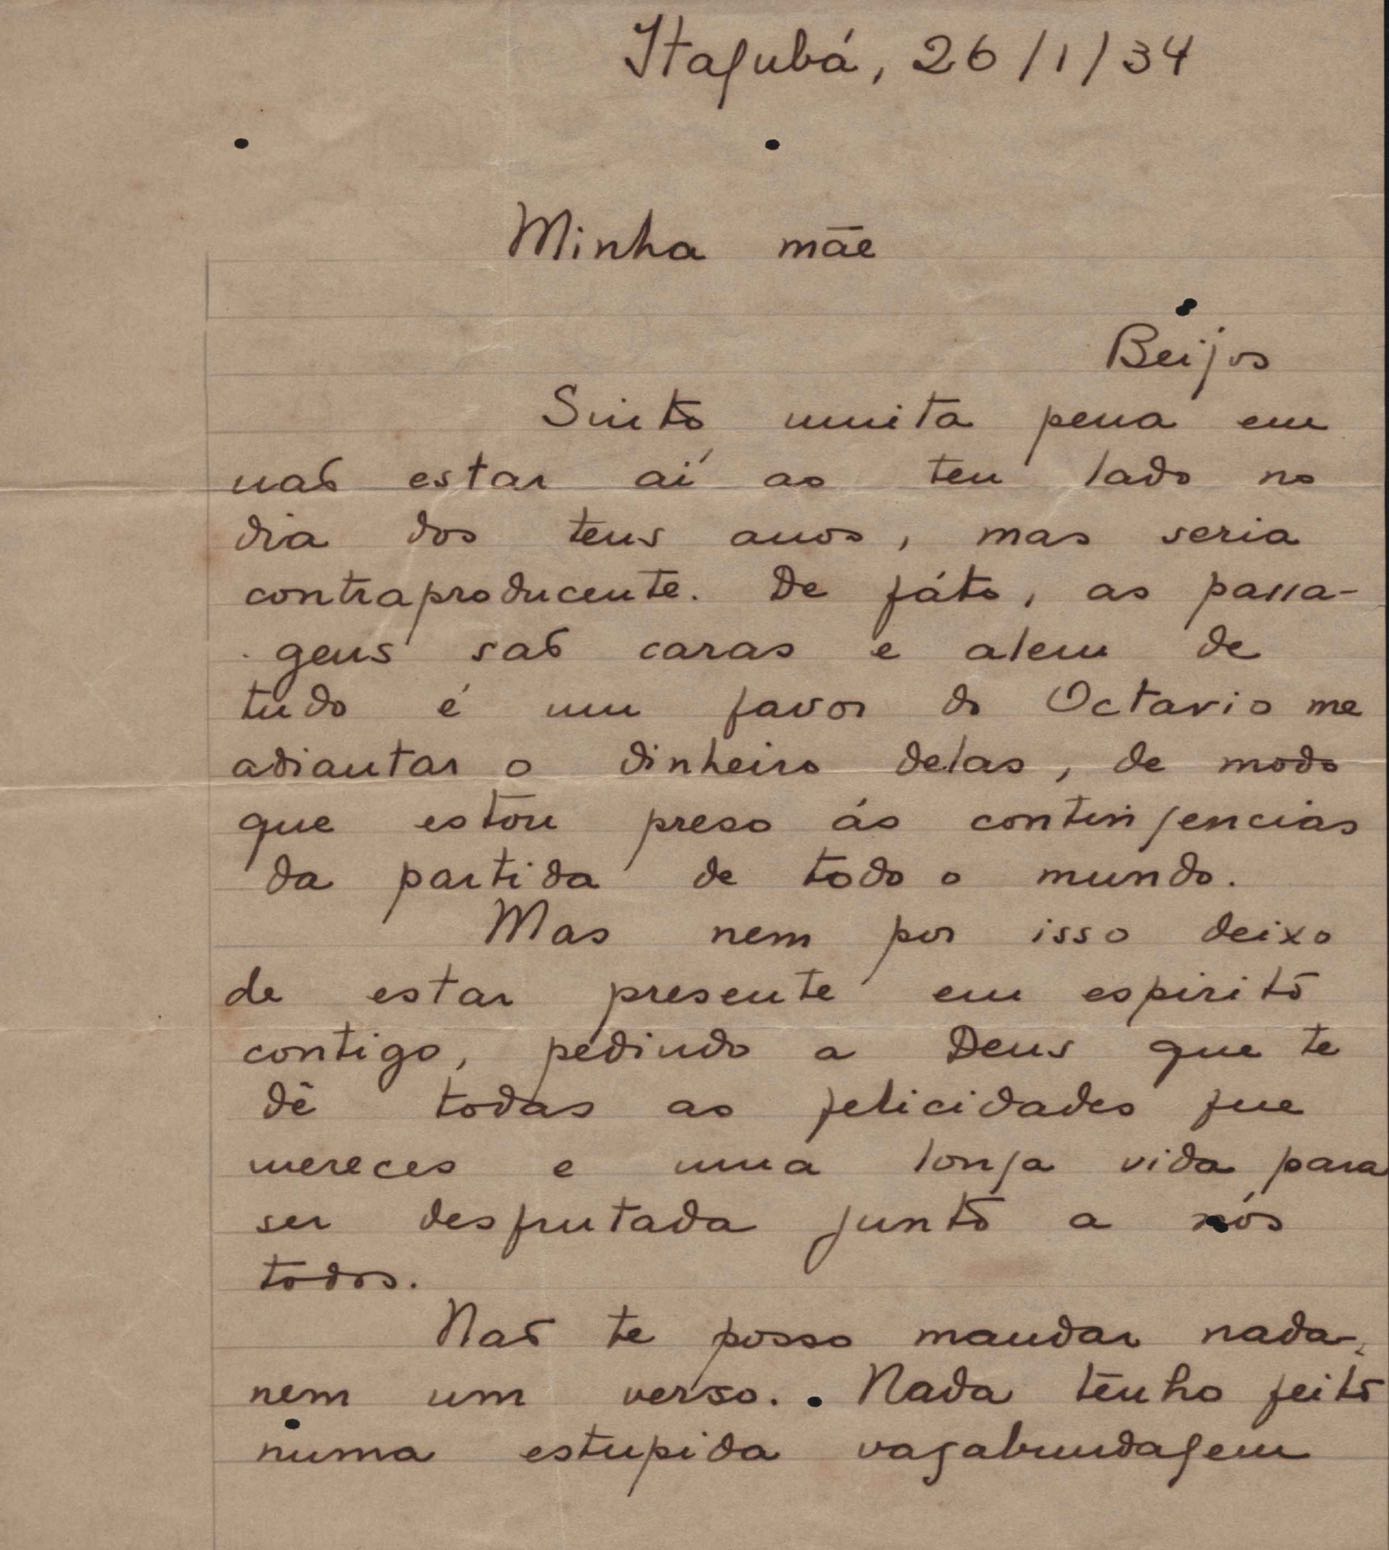 Itajubá, 26/1/34
Minha mãe
Beijos
Sinto muita pena em
não estar aí ao teu lado no
dia dos teus anos, mas seria
contraproducente. De fáto, as passa-
gens são caras e alem de
tudo é um favor do Octavio me
adiantar o dinheiro delas, de modo
que estou preso ás contingencias
da partida de todo o mundo.
Mas nem por isso deixo
de estar presente em espirito
contigo, pedindo a Deus que te
dê todas as felicidades que
mereces e uma longa vida para
ser desfrutada junto a nós
todos.
Não te posso mandar nada,
nem um verso. Nada tenho feito
numa estupida vagabundagem